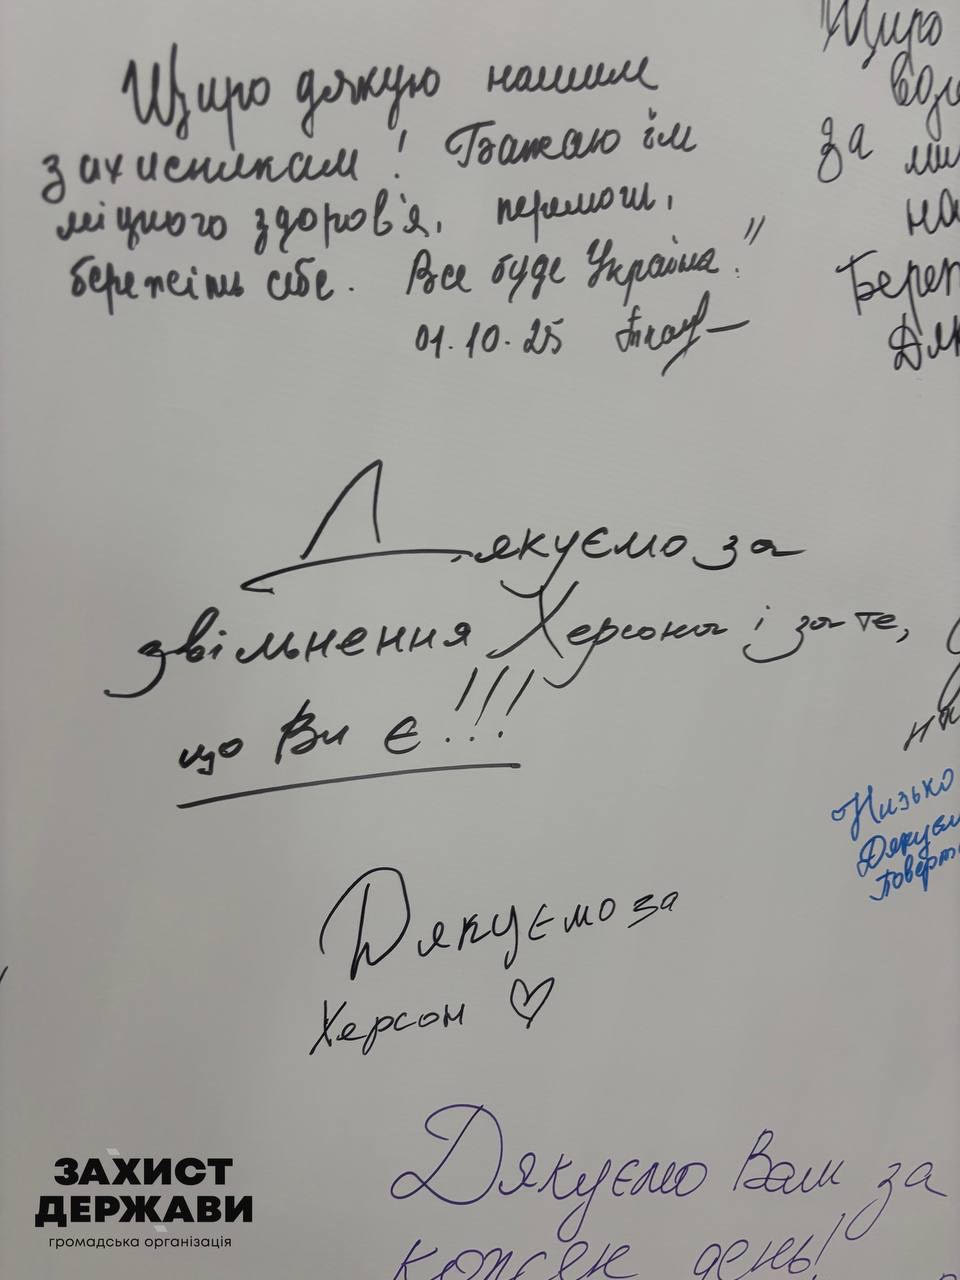 Щиро дякую нашим
захисникам! Бажаю їм
міцного здоров'я, перемоги,
бережіть себе. Все буде Україна!"
01.10.25
Щиро
За
Дякуємо за
звільнення Херсона і за те,
що Ви є!!!
Низько
Дякуємо за
Херсон ♡
Дякуємо Вам за
кожен день!
ЗАХИСТ
ДЕРЖАВИ
громадська організація